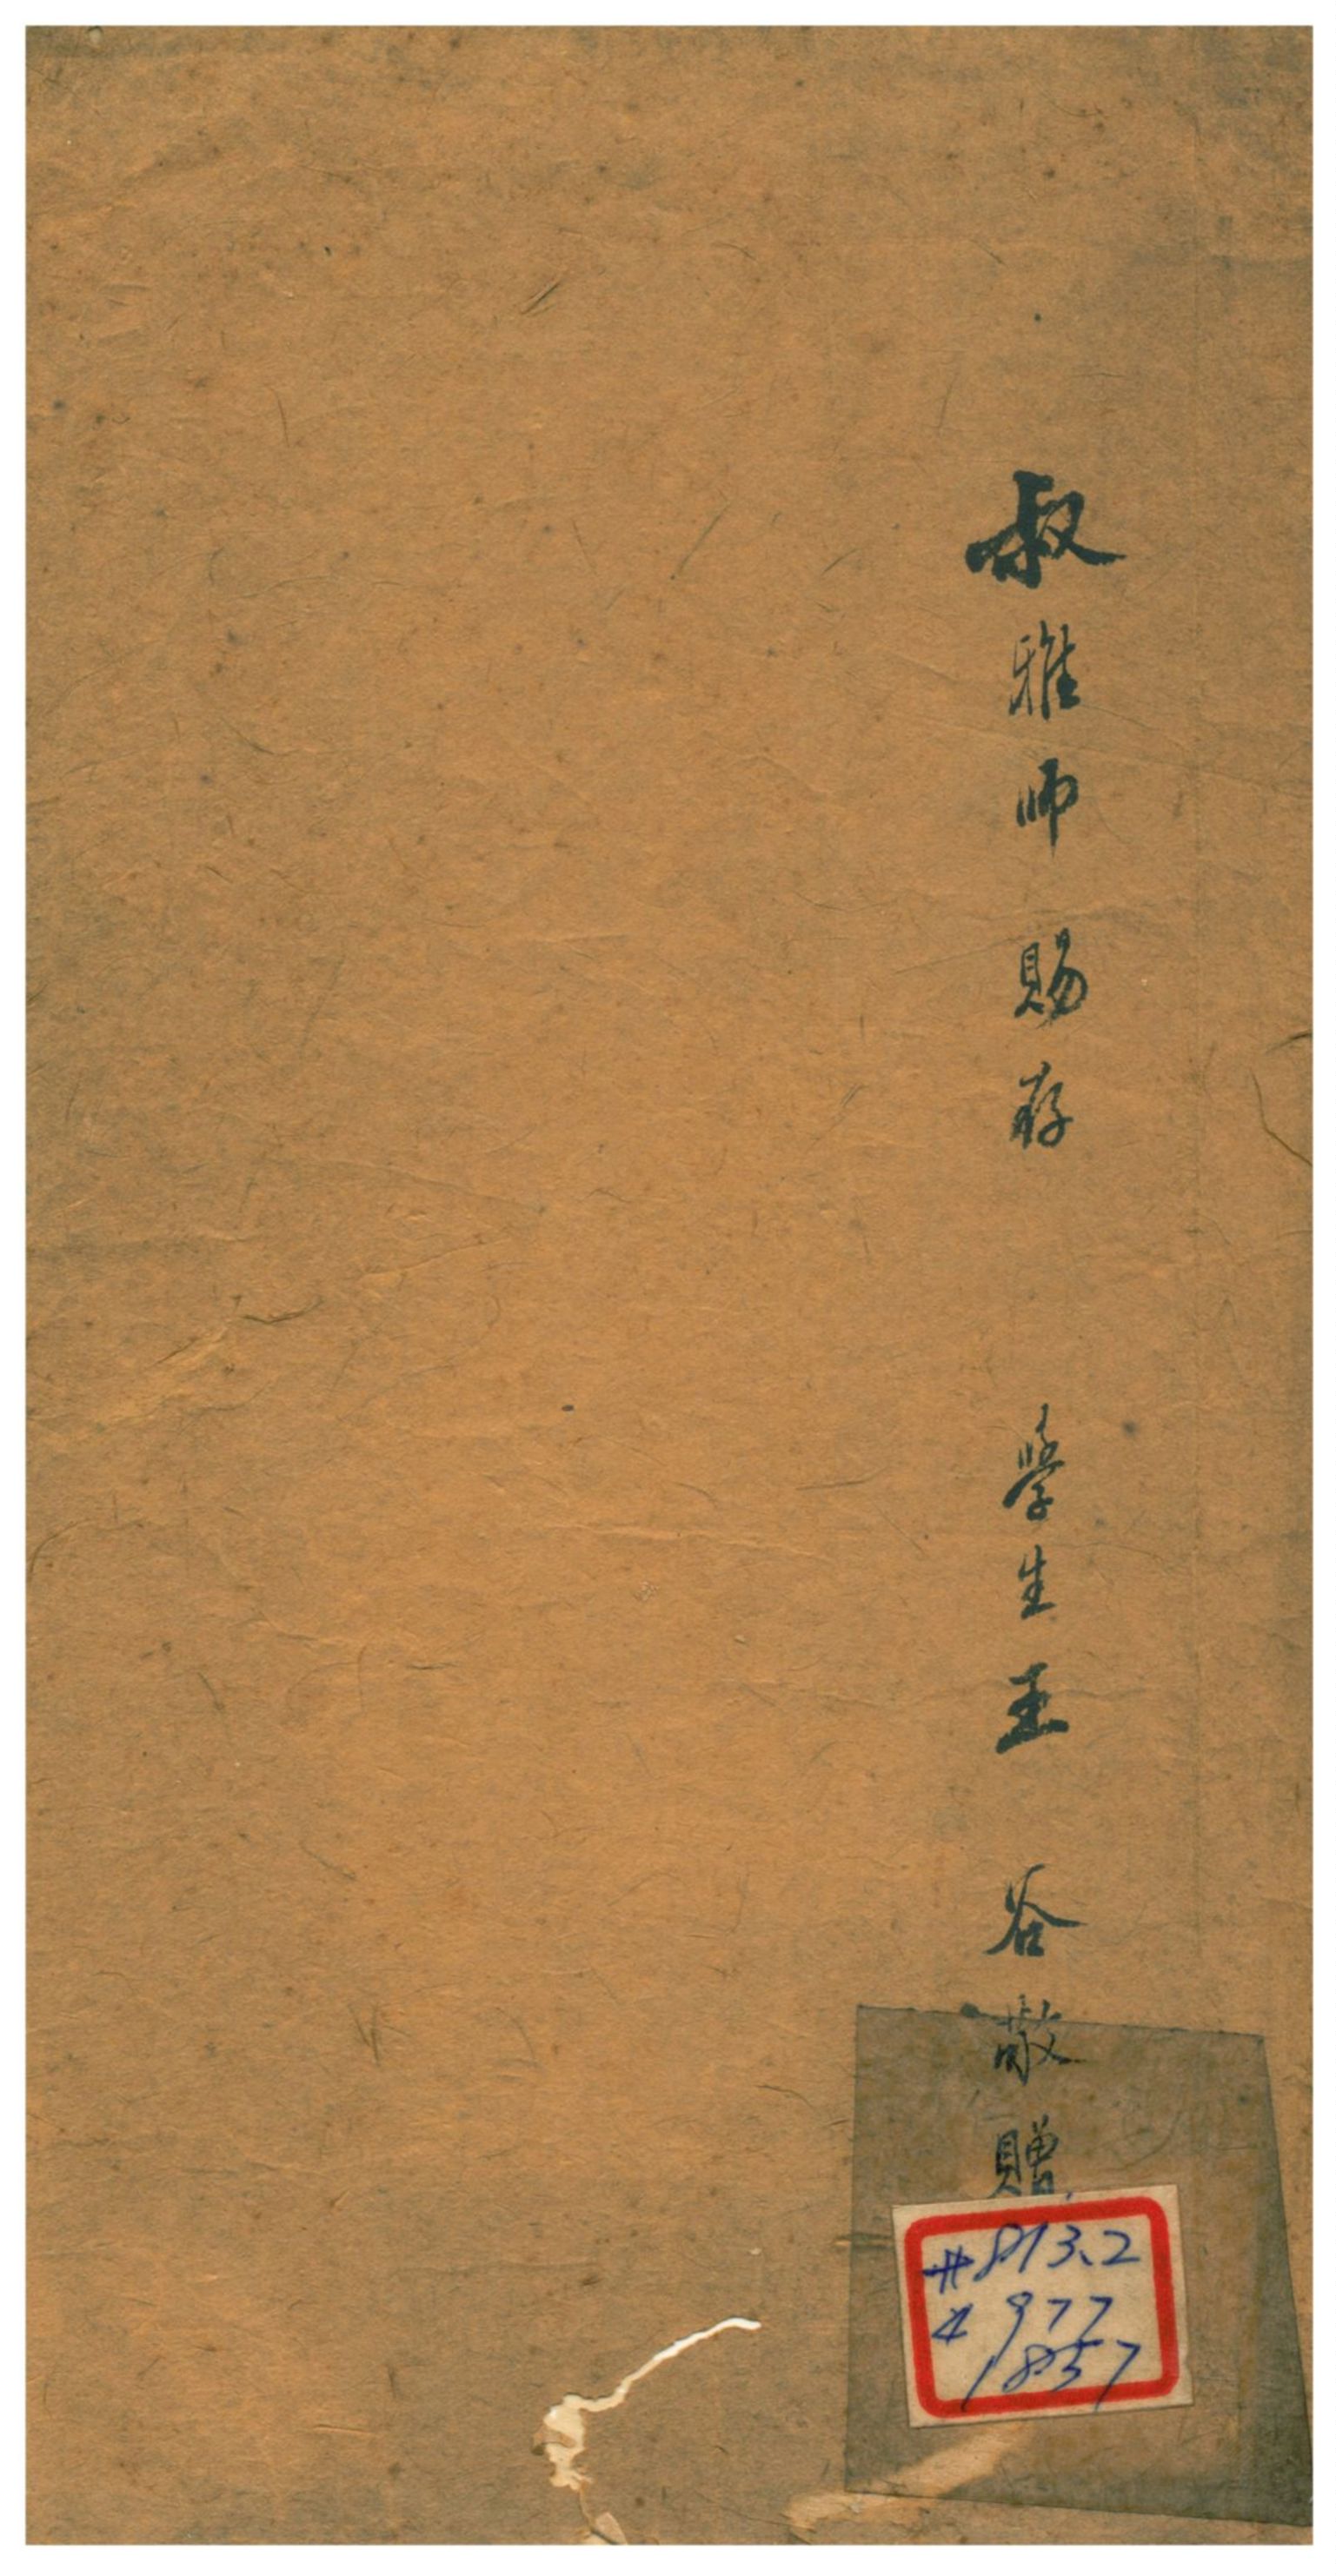 叔雅师賜存 學生王谷敬贈
#813.2
4977
1857